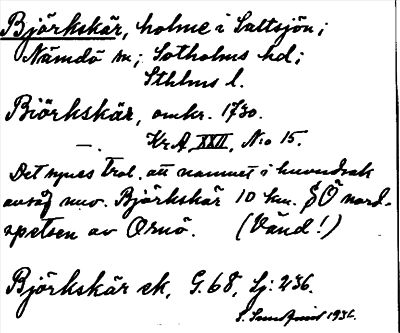 Björkskär, holme i Saltsjön;
Nämdö sn; Sotholms hd;
Sthlms l.
Biörkskär, omkr. 1730.
—. Kr.A. XXII, N:o 15.
Det synes trol. att namnet i huvudsak
avsåg nuv. Björkskär 10 km. SÖ nord-
spetsen av Ornö. (Vänd!)
Björkskär ek, G.68, Sj: 236.
S. 1931.